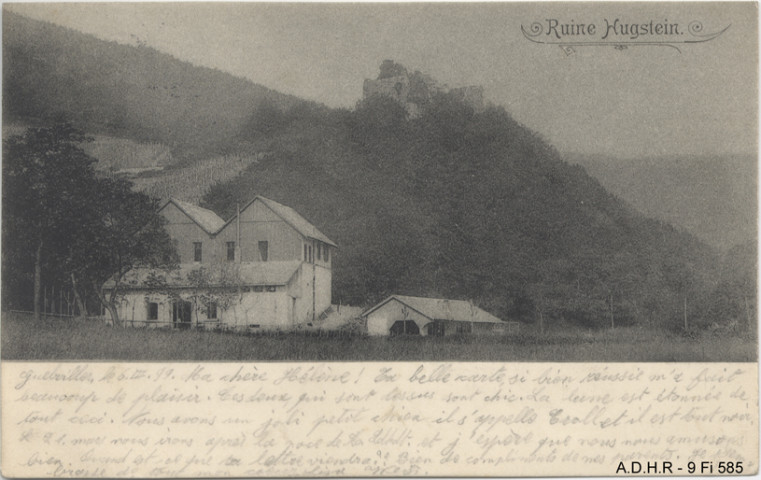 Ruine Hugstein.
Ma chère Hélène! Ta belle carte, si bien réussie m'a fait
beaucoup de plaisir. Ces deux qui sont dessus sont chic. La lune est étonnée de
tout ceci. Nous avons un joli petit chien il s'appelle et il est tout noir,
nous irons après la noce de et j'espère que nous nous amuserons
bien. Quand est-ce que ta lettre viendra? Bien de compliments de mes parents. Je
A.D.H.R - 9 Fi 585